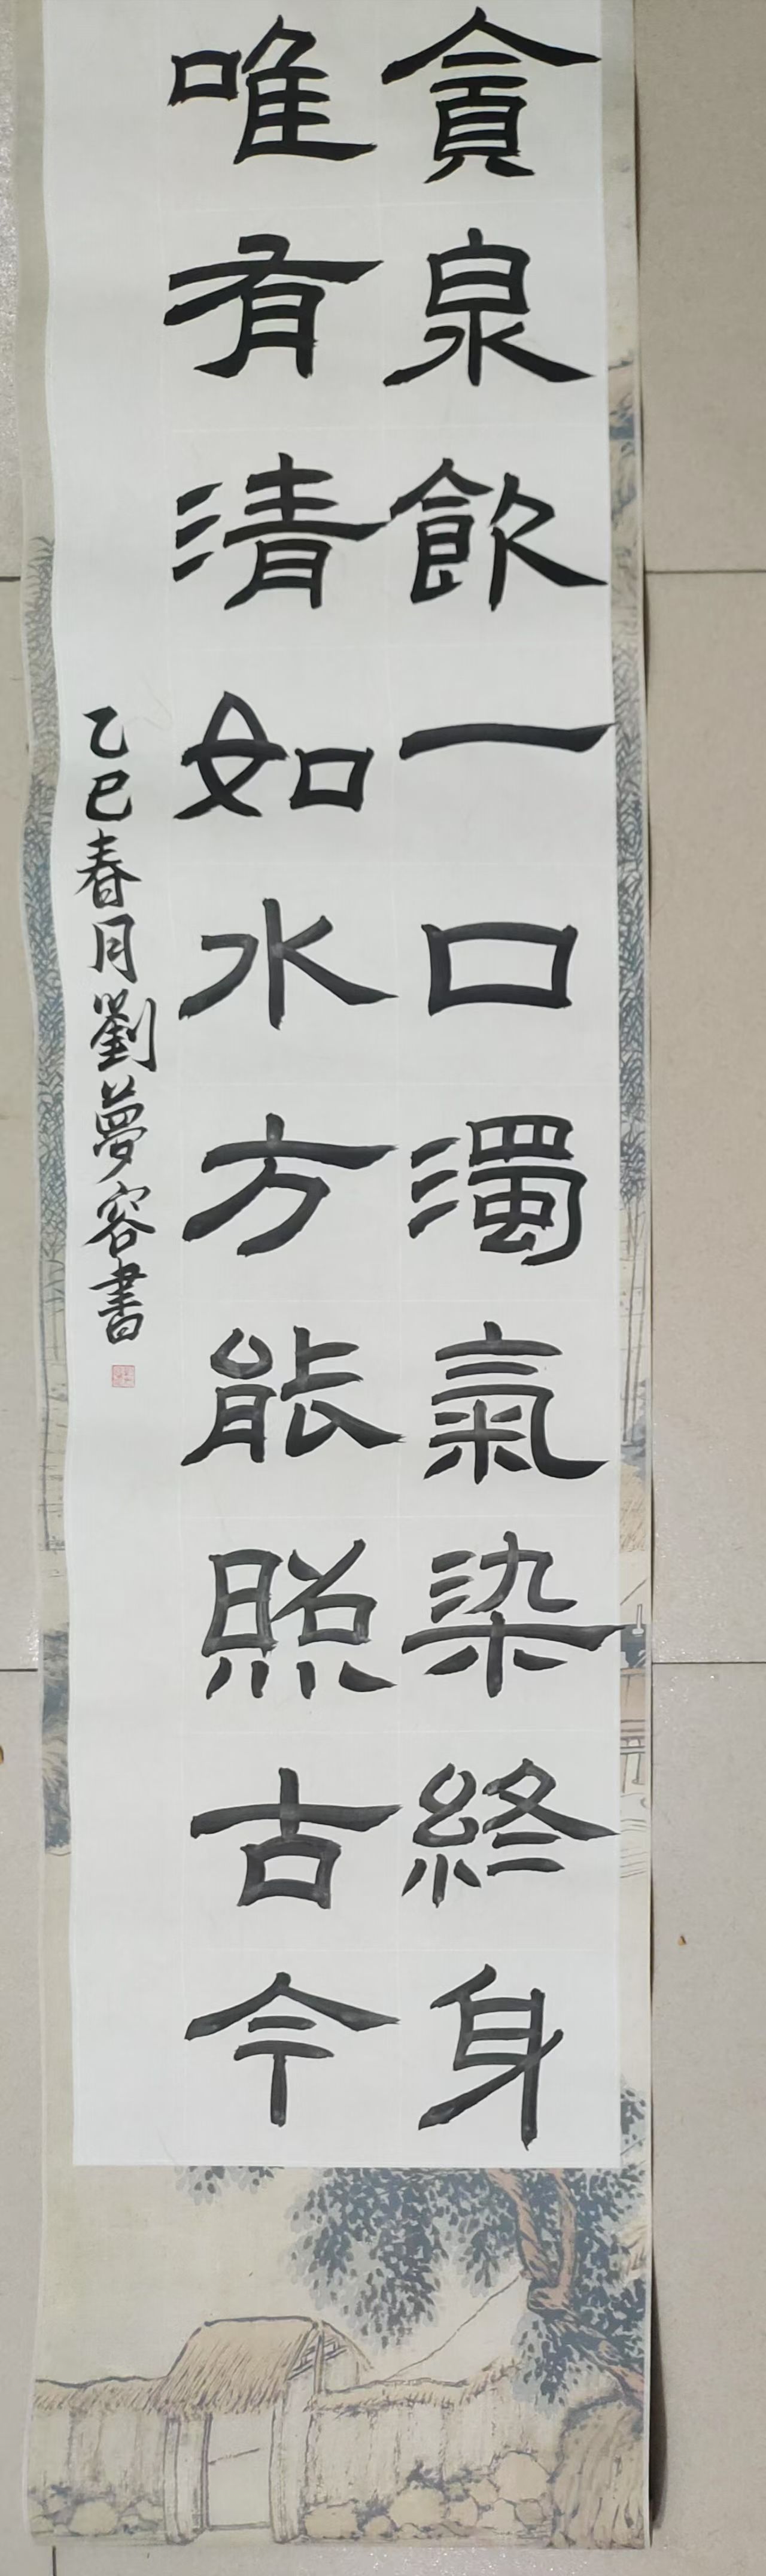 貪泉飲一口濁氣染終身
唯有清如水方能照古今
乙巳春月劉夢容書